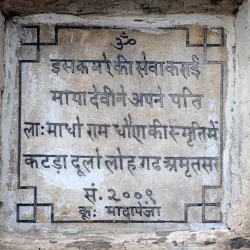 ॐ
इस कमरे की सेवा कराई
माया देवी ने अपने पति
ला: माधो राम चौणा की स्मृति में
कटड़ा दूलो लोहगढ अमृतसर
सं. २००९
कृ: